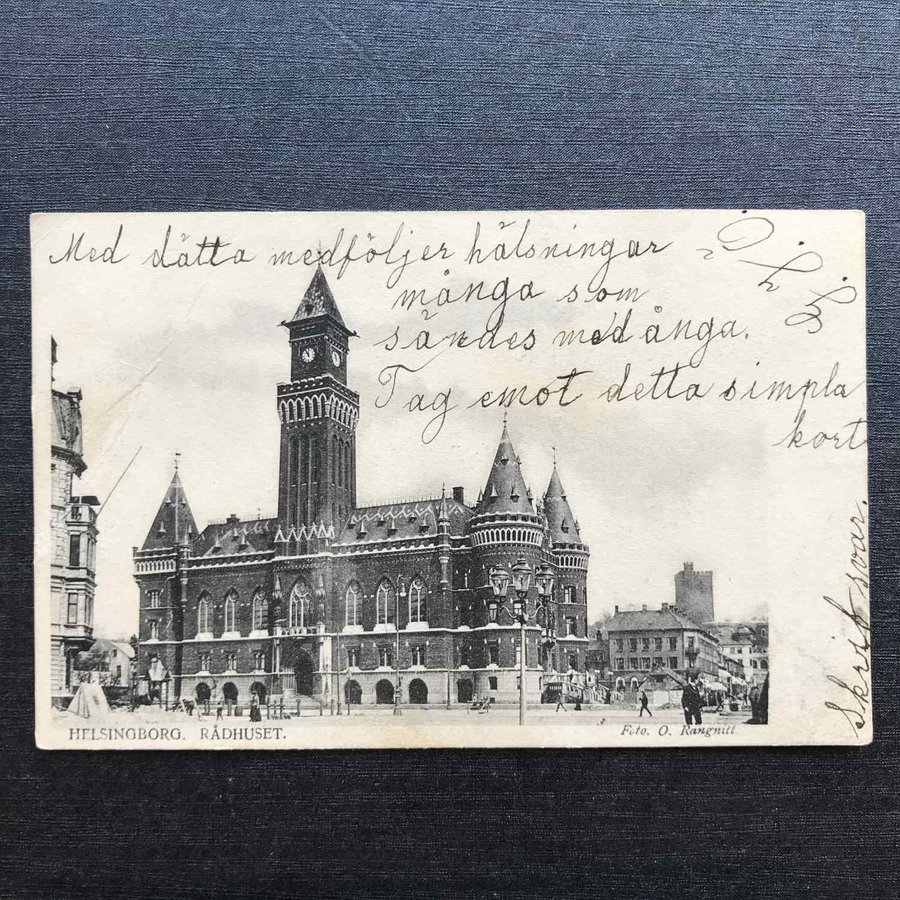 Med dätta medföljer hälsningar
många som
sändes med ånga.
Tag emot detta simpla
kort
Skrif svar.
HELSINGBORG. RÅDHUSET.
Foto. O. Rangnitt